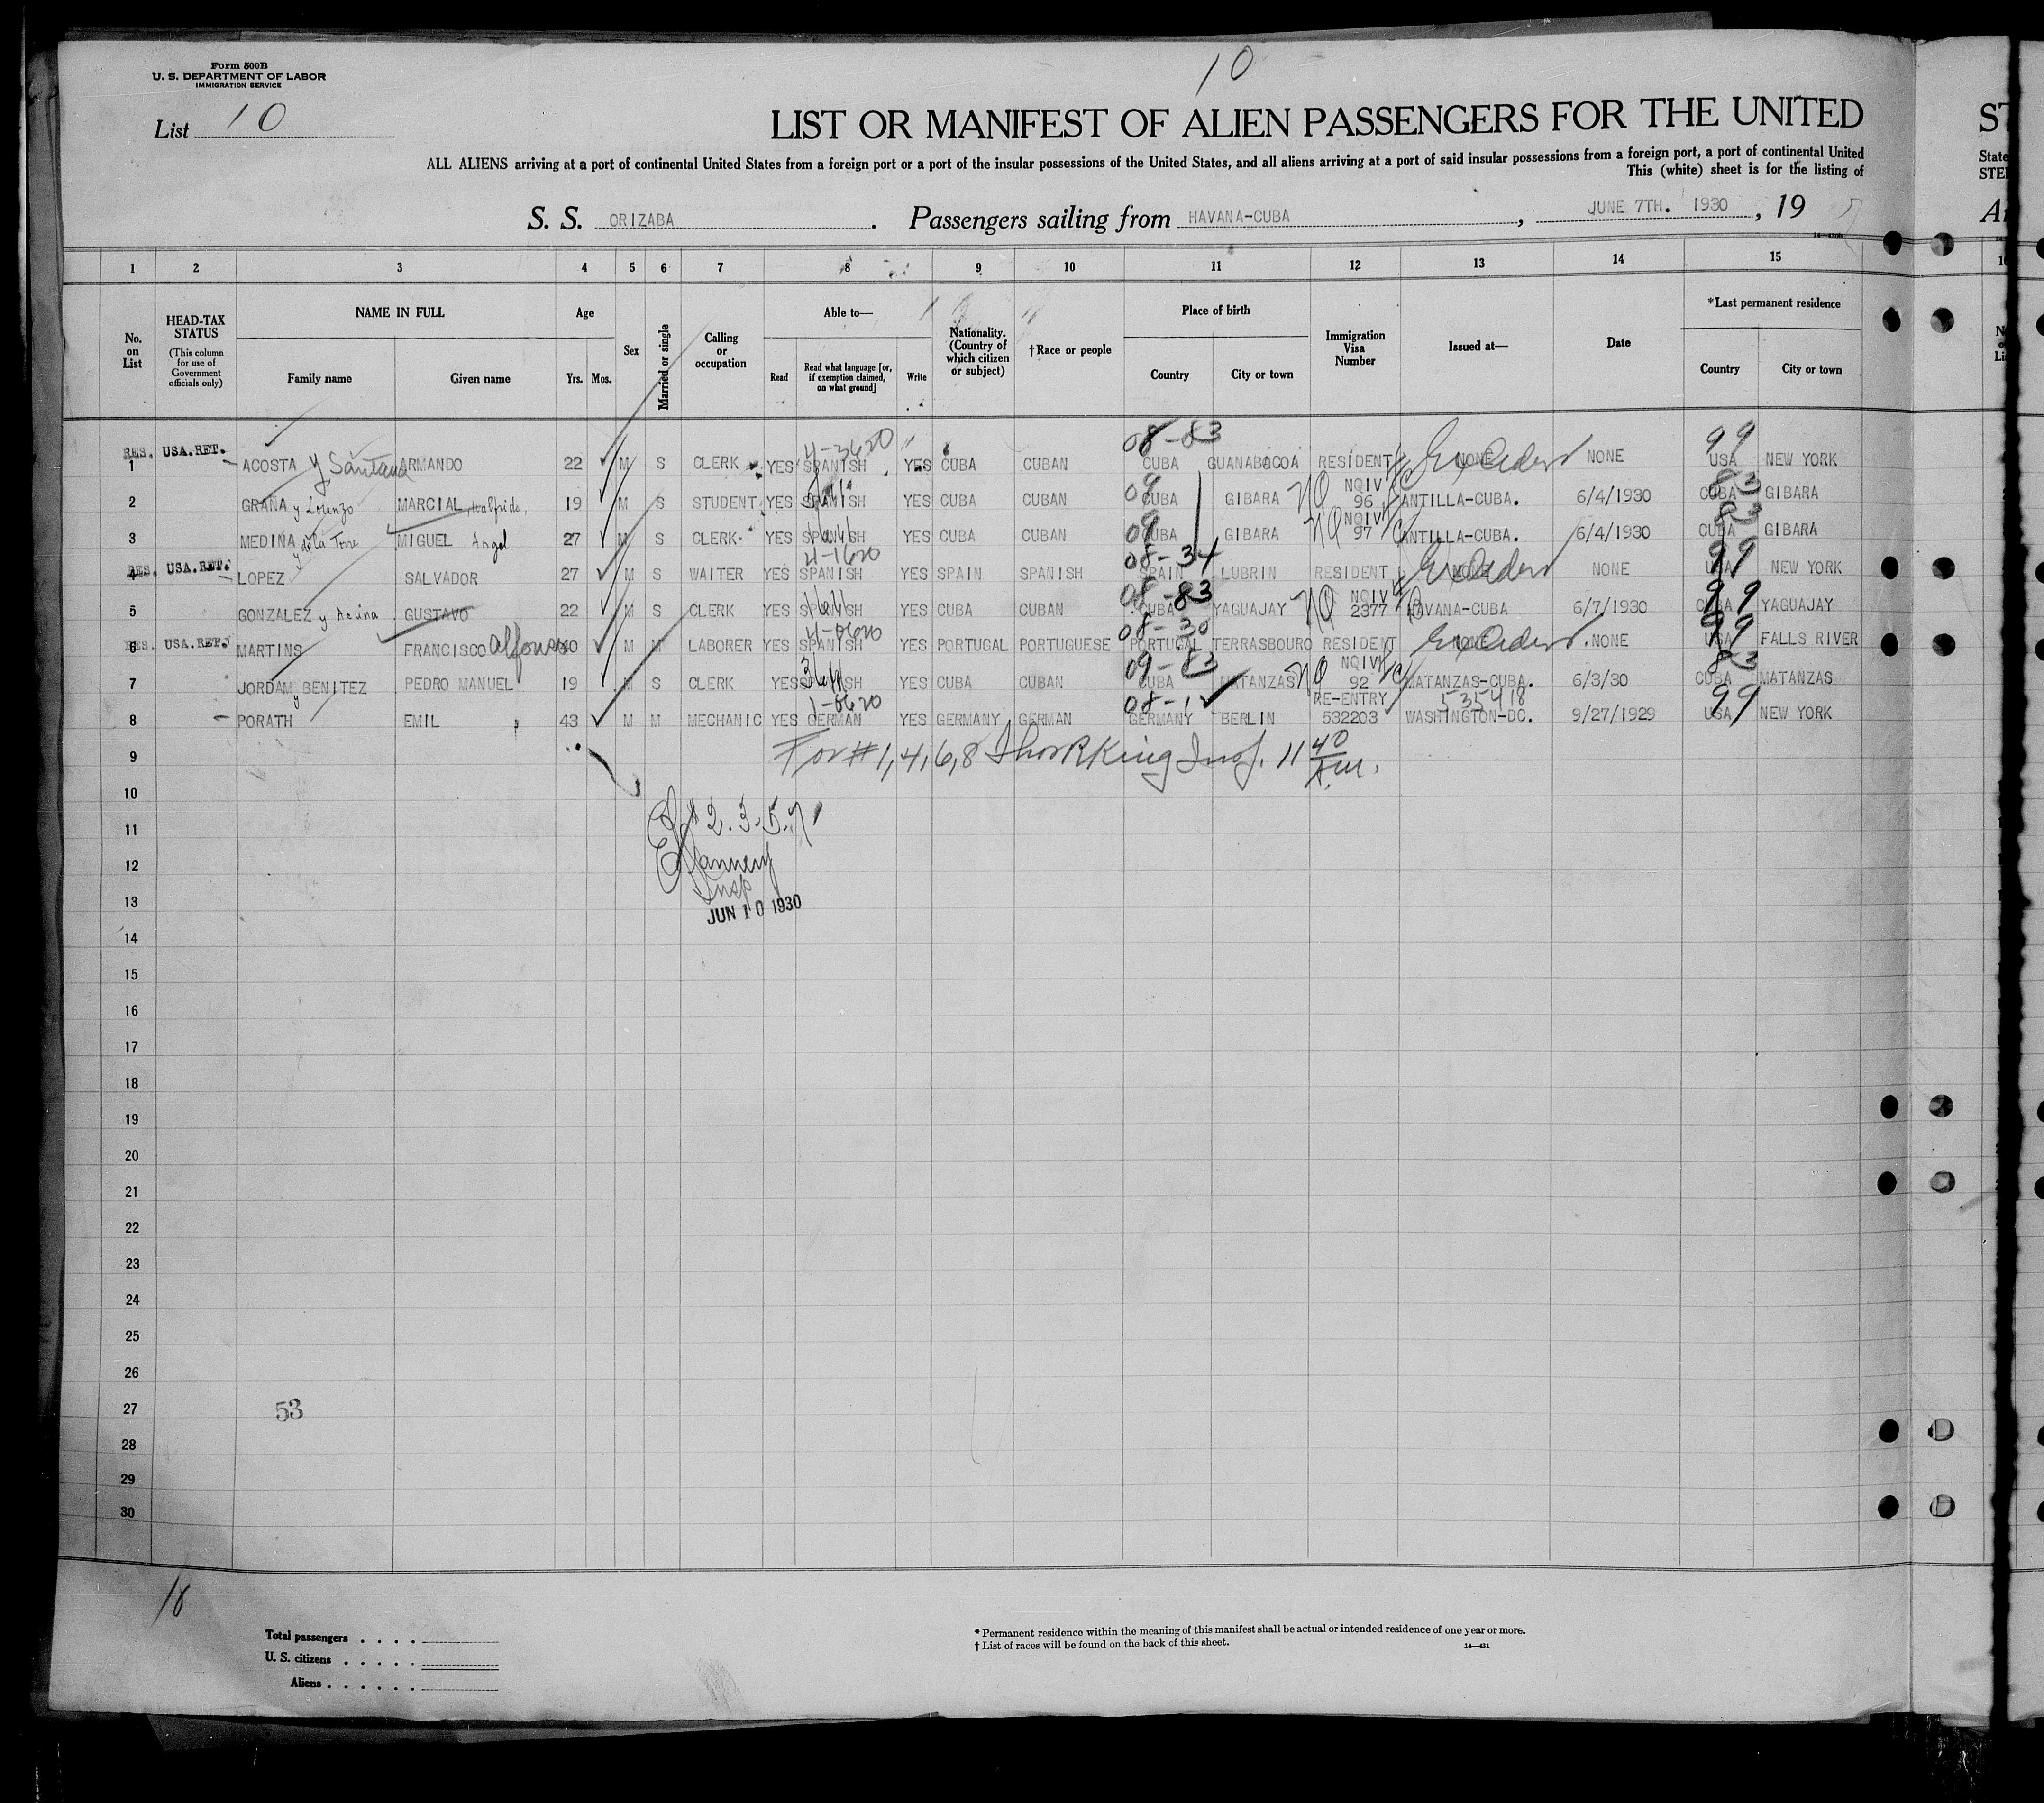 10
Form 500B
U. S. DEPARTMENT OF LABOR
IMMIGRATION SERVICE
List 10
LIST OR MANIFEST OF ALIEN PASSENGERS FOR THE UNITED
ST
ALL ALIENS arriving at a port of continental United States from a foreign port or a port of the insular possessions of the United States, and all aliens arriving at a port of said insular possessions from a foreign port, a port of continental United
State
This (white) sheet is for the listing of
STE
S. S. ORIZABA. Passengers sailing from HAVANA-CUBA, JUNE 7TH. 1930, 19
1 2 3 4 5 6 7 8 9 10 11 12 13 14 15
No. on List
HEAD-TAX STATUS (This column for use of Government officials only)
NAME IN FULL
Family name Given name
Age
Yrs. Mos.
Sex
Married or single
Calling or occupation
Able to—
Read Read what language [or, if exemption claimed, on what ground] Write
Nationality. (Country of which citizen or subject)
†Race or people
Place of birth
Country City or town
Immigration Visa Number
Issued at—
Date
*Last permanent residence
Country City or town
4-3620 08-83 99
1 RES. USA.RET. ACOSTA y Santana ARMANDO 22 M S CLERK YES SPANISH YES CUBA CUBAN CUBA GUANABACOA RESIDENT NONE NONE USA NEW YORK
09 NQIV 83
2 GRAÑA y Lorenzo MARCIAL Walfrido, 19 M S STUDENT YES SPANISH YES CUBA CUBAN CUBA GIBARA NO 96 ANTILLA-CUBA. 6/4/1930 CUBA GIBARA
09 NQIV 83
3 MEDINA y de la Torre MIGUEL Angel 27 M S CLERK YES SPANISH YES CUBA CUBAN CUBA GIBARA NO 97 ANTILLA-CUBA. 6/4/1930 CUBA GIBARA
4-1620 08-34 99
4 RES. USA.RET. LOPEZ SALVADOR 27 M S WAITER YES SPANISH YES SPAIN SPANISH SPAIN LUBRIN RESIDENT NONE NONE USA NEW YORK
08-83 NQIV 99
5 GONZALEZ y Acuña GUSTAVO 22 M S CLERK YES SPANISH YES CUBA CUBAN CUBA YAGUAJAY NO 2377 HAVANA-CUBA 6/7/1930 CUBA YAGUAJAY
08-30 99
6 RES. USA.RET. MARTINS FRANCISCO Alfonso 40 M M LABORER YES SPANISH YES PORTUGAL PORTUGUESE PORTUGAL TERRASBOURO RESIDENT NONE NONE USA FALLS RIVER
09-83 NQIV 83
7 JORDAM y BENITEZ PEDRO MANUEL 19 M S CLERK YES SPANISH YES CUBA CUBAN CUBA MATANZAS NO 92 MATANZAS-CUBA. 6/3/30 CUBA MATANZAS
1-0620 08-1 RE-ENTRY 535418 99
8 PORATH EMIL 43 M M MECHANIC YES GERMAN YES GERMANY GERMAN GERMANY BERLIN 532203 WASHINGTON-DC. 9/27/1929 USA NEW YORK
9 For #1,4,6,8 King Insp. 11 40 Am.
10
11 #2.3.5.7
12
13 Insp
JUN 10 1930
14
15
16
17
18
19
20
21
22
23
24
25
26
27 53
28
29
30
18
Total passengers
U. S. citizens
Aliens
* Permanent residence within the meaning of this manifest shall be actual or intended residence of one year or more.
† List of races will be found on the back of this sheet. 14—431